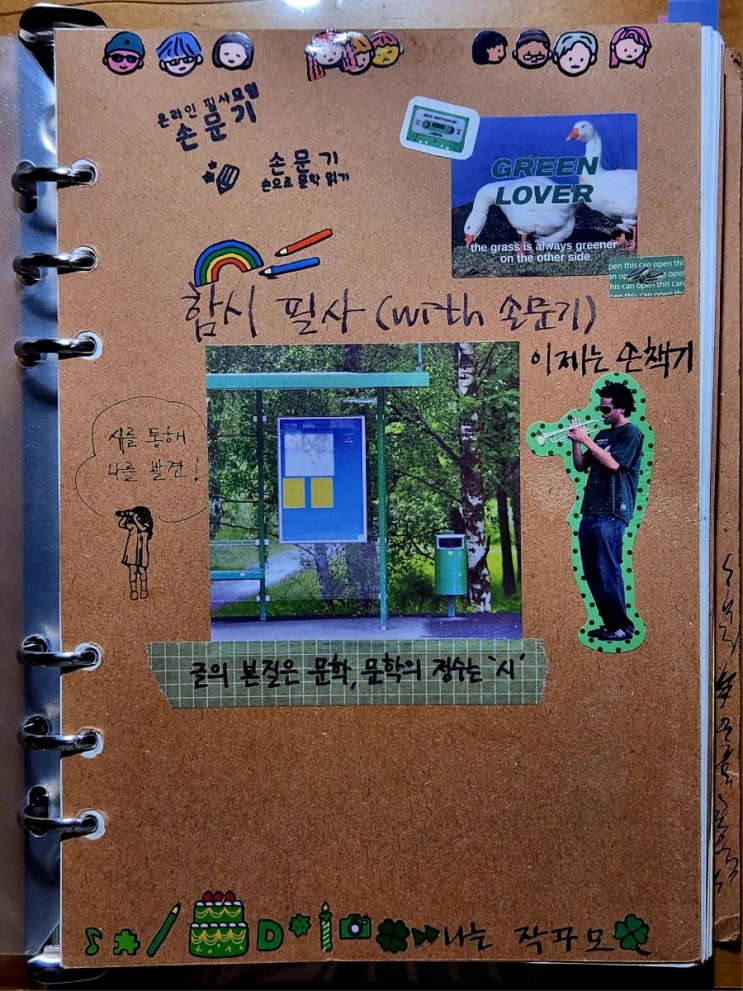 온라인 필사모임
손문기
손문기
손으로 문학 읽기
GREEN
LOVER
the grass is always greener
on the other side
open this can open this
this can open this can
함시 필사 (with 손문기)
이제는 손책기
시를 통해
나를 발견!
Info
글의 본질은 문학, 문학의 정수는 '시'
D
나는 작파모